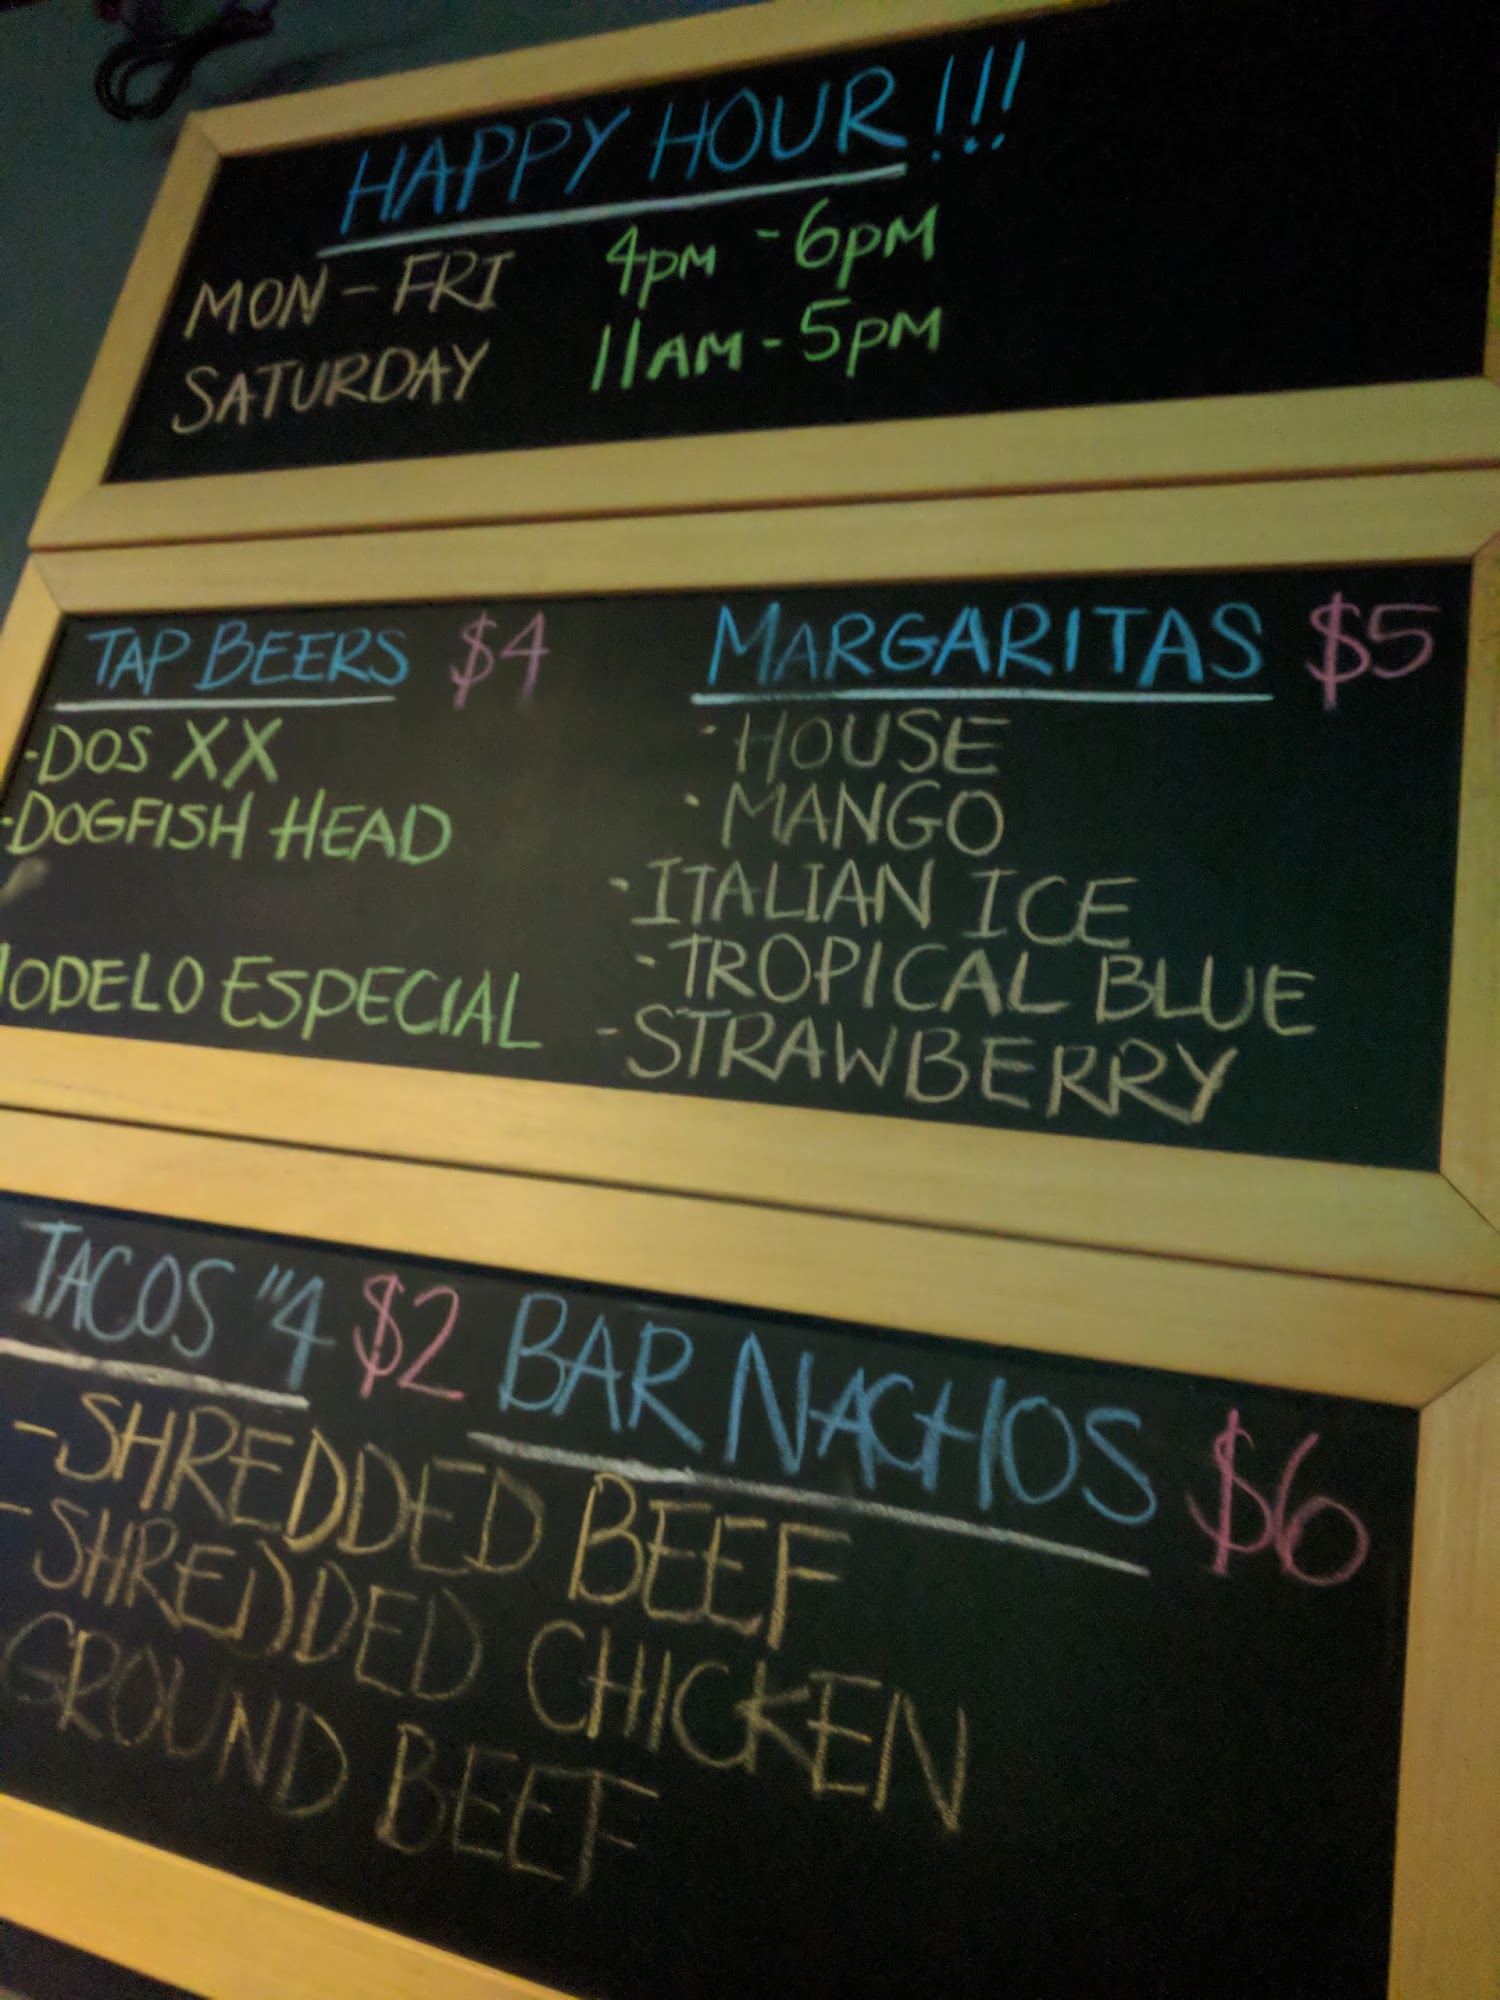 HAPPY HOUR!!!
MON - FRI 4PM - 6PM
SATURDAY 11AM - 5PM
TAP BEERS $4
- DOS XX
- DOGFISH HEAD
MODELO ESPECIAL
MARGARITAS $5
- HOUSE
- MANGO
- ITALIAN ICE
- TROPICAL BLUE
- STRAWBERRY
TACOS "4 $2
BAR NACHOS $6
- SHREDDED BEEF
- SHREDDED CHICKEN
GROUND BEEF